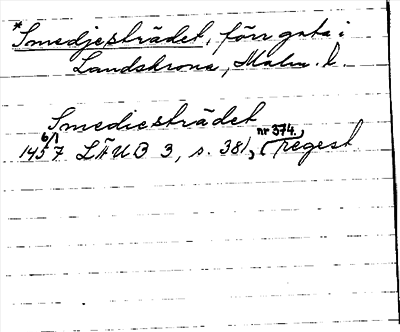 *Smedjesträdet, förr gata i
Landskrona, Malm. l.
Smediesträdet
6/1 1457 LÄUB 3, s. 381, nr 574., (regest